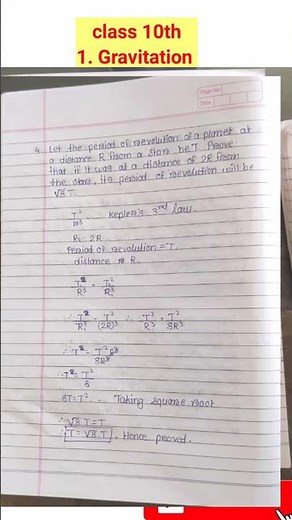 class 10th
1. Gravitation
Page No.
Date
4. Let the period of revolution of a planet at
a distance R from a star be T. Prove
that if it was at a distance of 2R from
the star, its period of revolution will be
√8 T.
T²/R³ .... Kepler's 3rd law
R₂ = 2R
Period of revolution = T
distance R
T²/R³ = T²/R³
∴ T²/R³ = T²/(2R)³ ∴ T²/R³ = T²/8R³
∴ T² = T²R³/8R³
∴ T² = T²/8
8T = T² ... Taking square root
∴ √8.T = T
T = √8.T . Hence proved.